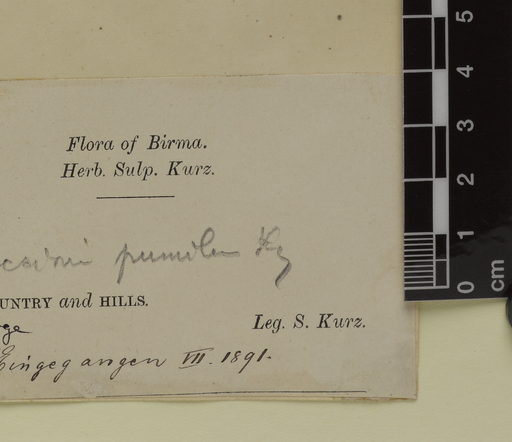 Flora of Birma.
Herb. Sulp. Kurz.
pumila Kz
UNTRY and HILLS.
ge
Leg. S. Kurz.
Eingegangen VII. 1891.
5
4
3
2
1
0
cm